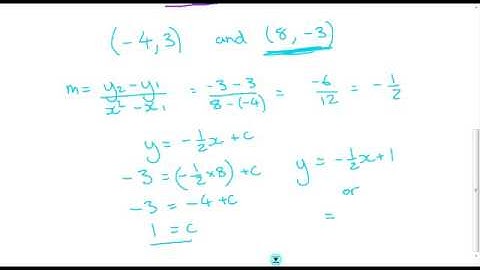 (-4,3) and (8,-3)
m = y₂-y₁ / x²-x₁ = -3-3 / 8-(-4) = -6 / 12 = -1/2
y = -1/2x + c
-3 = (-1/2×8) + c
-3 = -4 + c
1 = c
y = -1/2x + 1
or
=